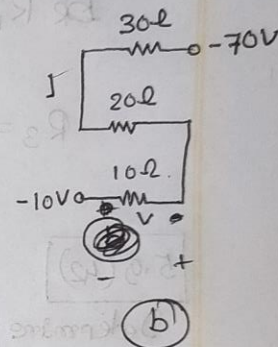 30Ω
-70V
I
20Ω
10Ω
-10V
V
- +
b